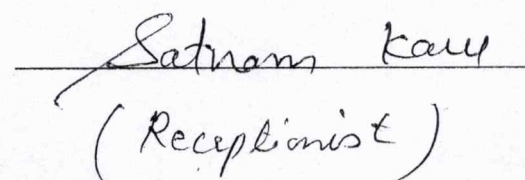 Satnam Kaur
(Receptionist)